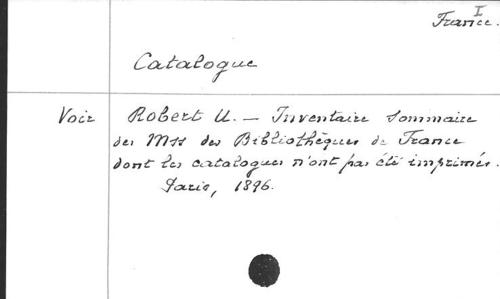 I
France.
Catalogue
Voir Robert U. — Inventaire sommaire
des Mss des Bibliothèques de France
dont les catalogues n'ont pas été imprimés.
Paris, 1896.